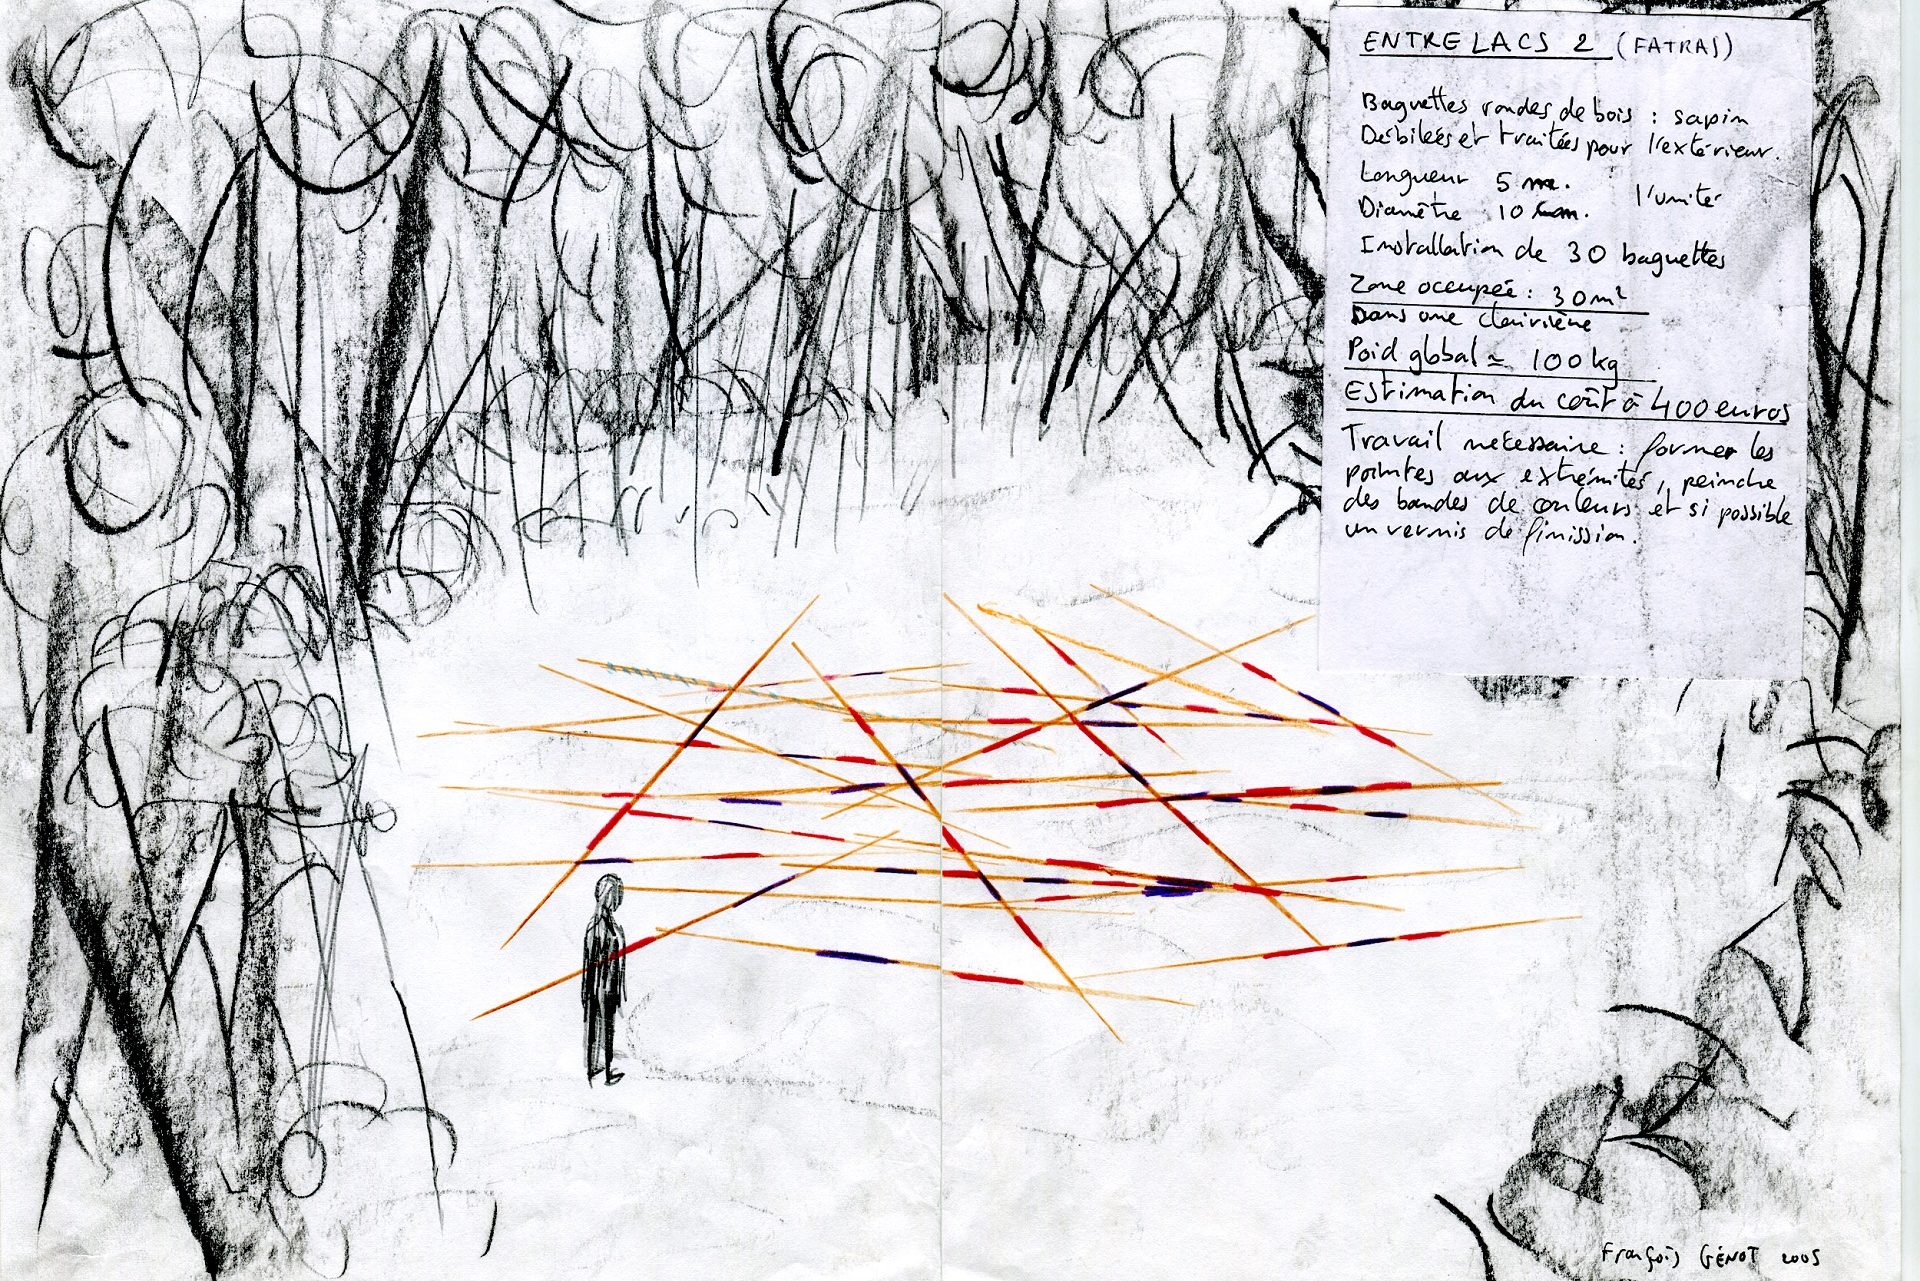 ENTRELACS 2 (FATRAS)
Baguettes rondes de bois : sapin
Débiteés et traitées pour l'extérieur.
Longueur 5 m. l'unité
Diamètre 10 cm.
Installation de 30 baguettes
Zone occupée : 30m²
Dans une clairière
Poid global ≃ 100kg
Estimation du coût à 400 euros
Travail nécessaire : former les
pointes aux extrémités, peindre
des bandes de couleurs et si possible
un vernis de finission.
François GÉNOT 2005